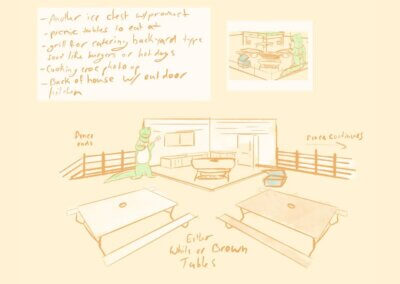 -Another ice chest w/product
-picnic tables to eat at
-grill for catering, backyard type
food like burgers or hotdogs
-Cooking croc photo op
-Back of house w/ outdoor
kitchen
Fence
ends
Fence continues
Either
White or Brown
Tables